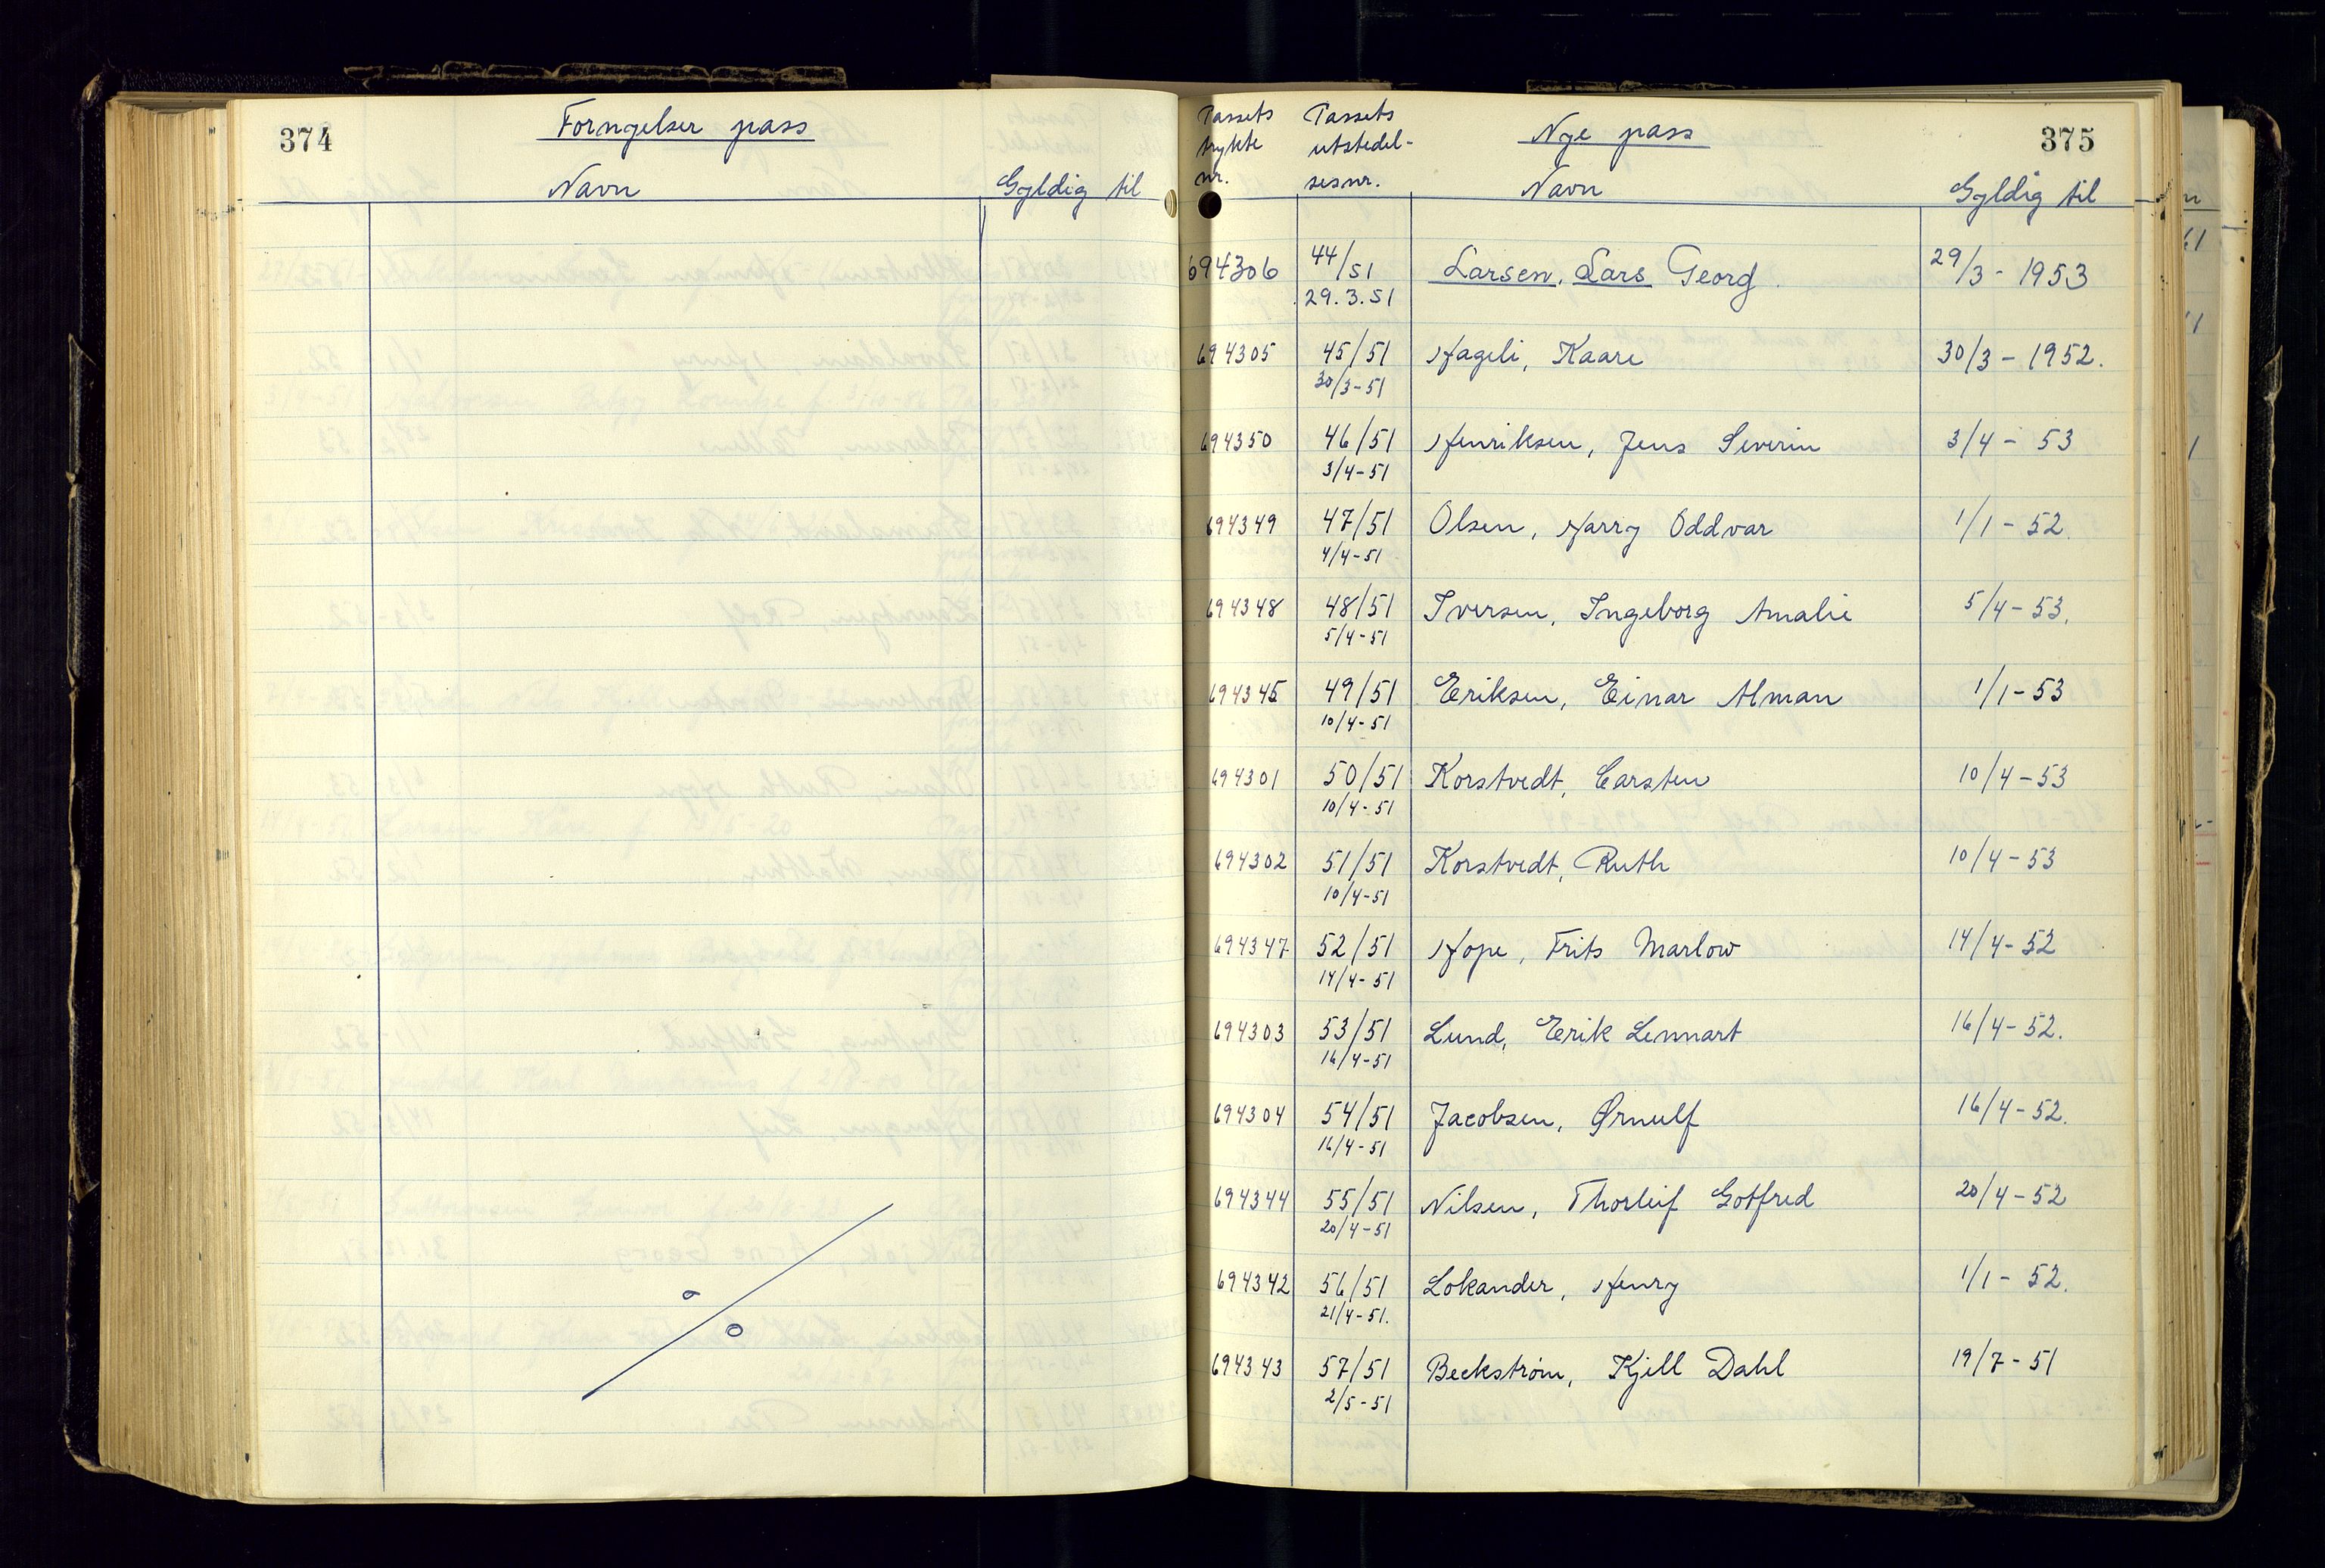 374
Fornyelser pass
Navn
Gyldig til
Passets trykte nr.
Passets utstedel-sesnr.
Nye pass
375
Navn
Gyldig til
694306 44/51 Larsen, Lars Georg 29/3 - 1953
29.3.51
694305 45/51 Hageli, Kaare 30/3 - 1952.
30/3-51
694350 46/51 Henriksen, Jens Severin 3/4 - 53
3/4-51
694349 47/51 Olsen, Harry Oddvar 1/1 - 52.
4/4-51
694348 48/51 Iversen, Ingeborg Amalie 5/4-53.
5/4-51
694345 49/51 Eriksen, Einar Alman 1/1-53
10/4-51
694301 50/51 Korstvedt, Carsten 10/4-53
10/4-51
694302 51/51 Korstvedt, Ruth 10/4-53
10/4-51
694347 52/51 Hope, Frits Marlow 14/4-52
14/4-51
694303 53/51 Lund, Erik Lennart 16/4-52.
16/4-51
694304 54/51 Jacobsen, Ørnulf 16/4-52.
16/4-51
694344 55/51 Nilsen, Thorleif Gotfred 20/4-52
20/4-51
694342 56/51 Lokander, Henry 1/1 - 52.
21/4-51.
694343 57/51 Beckstrøm, Kjell Dahl 19/7-51
2/5-51